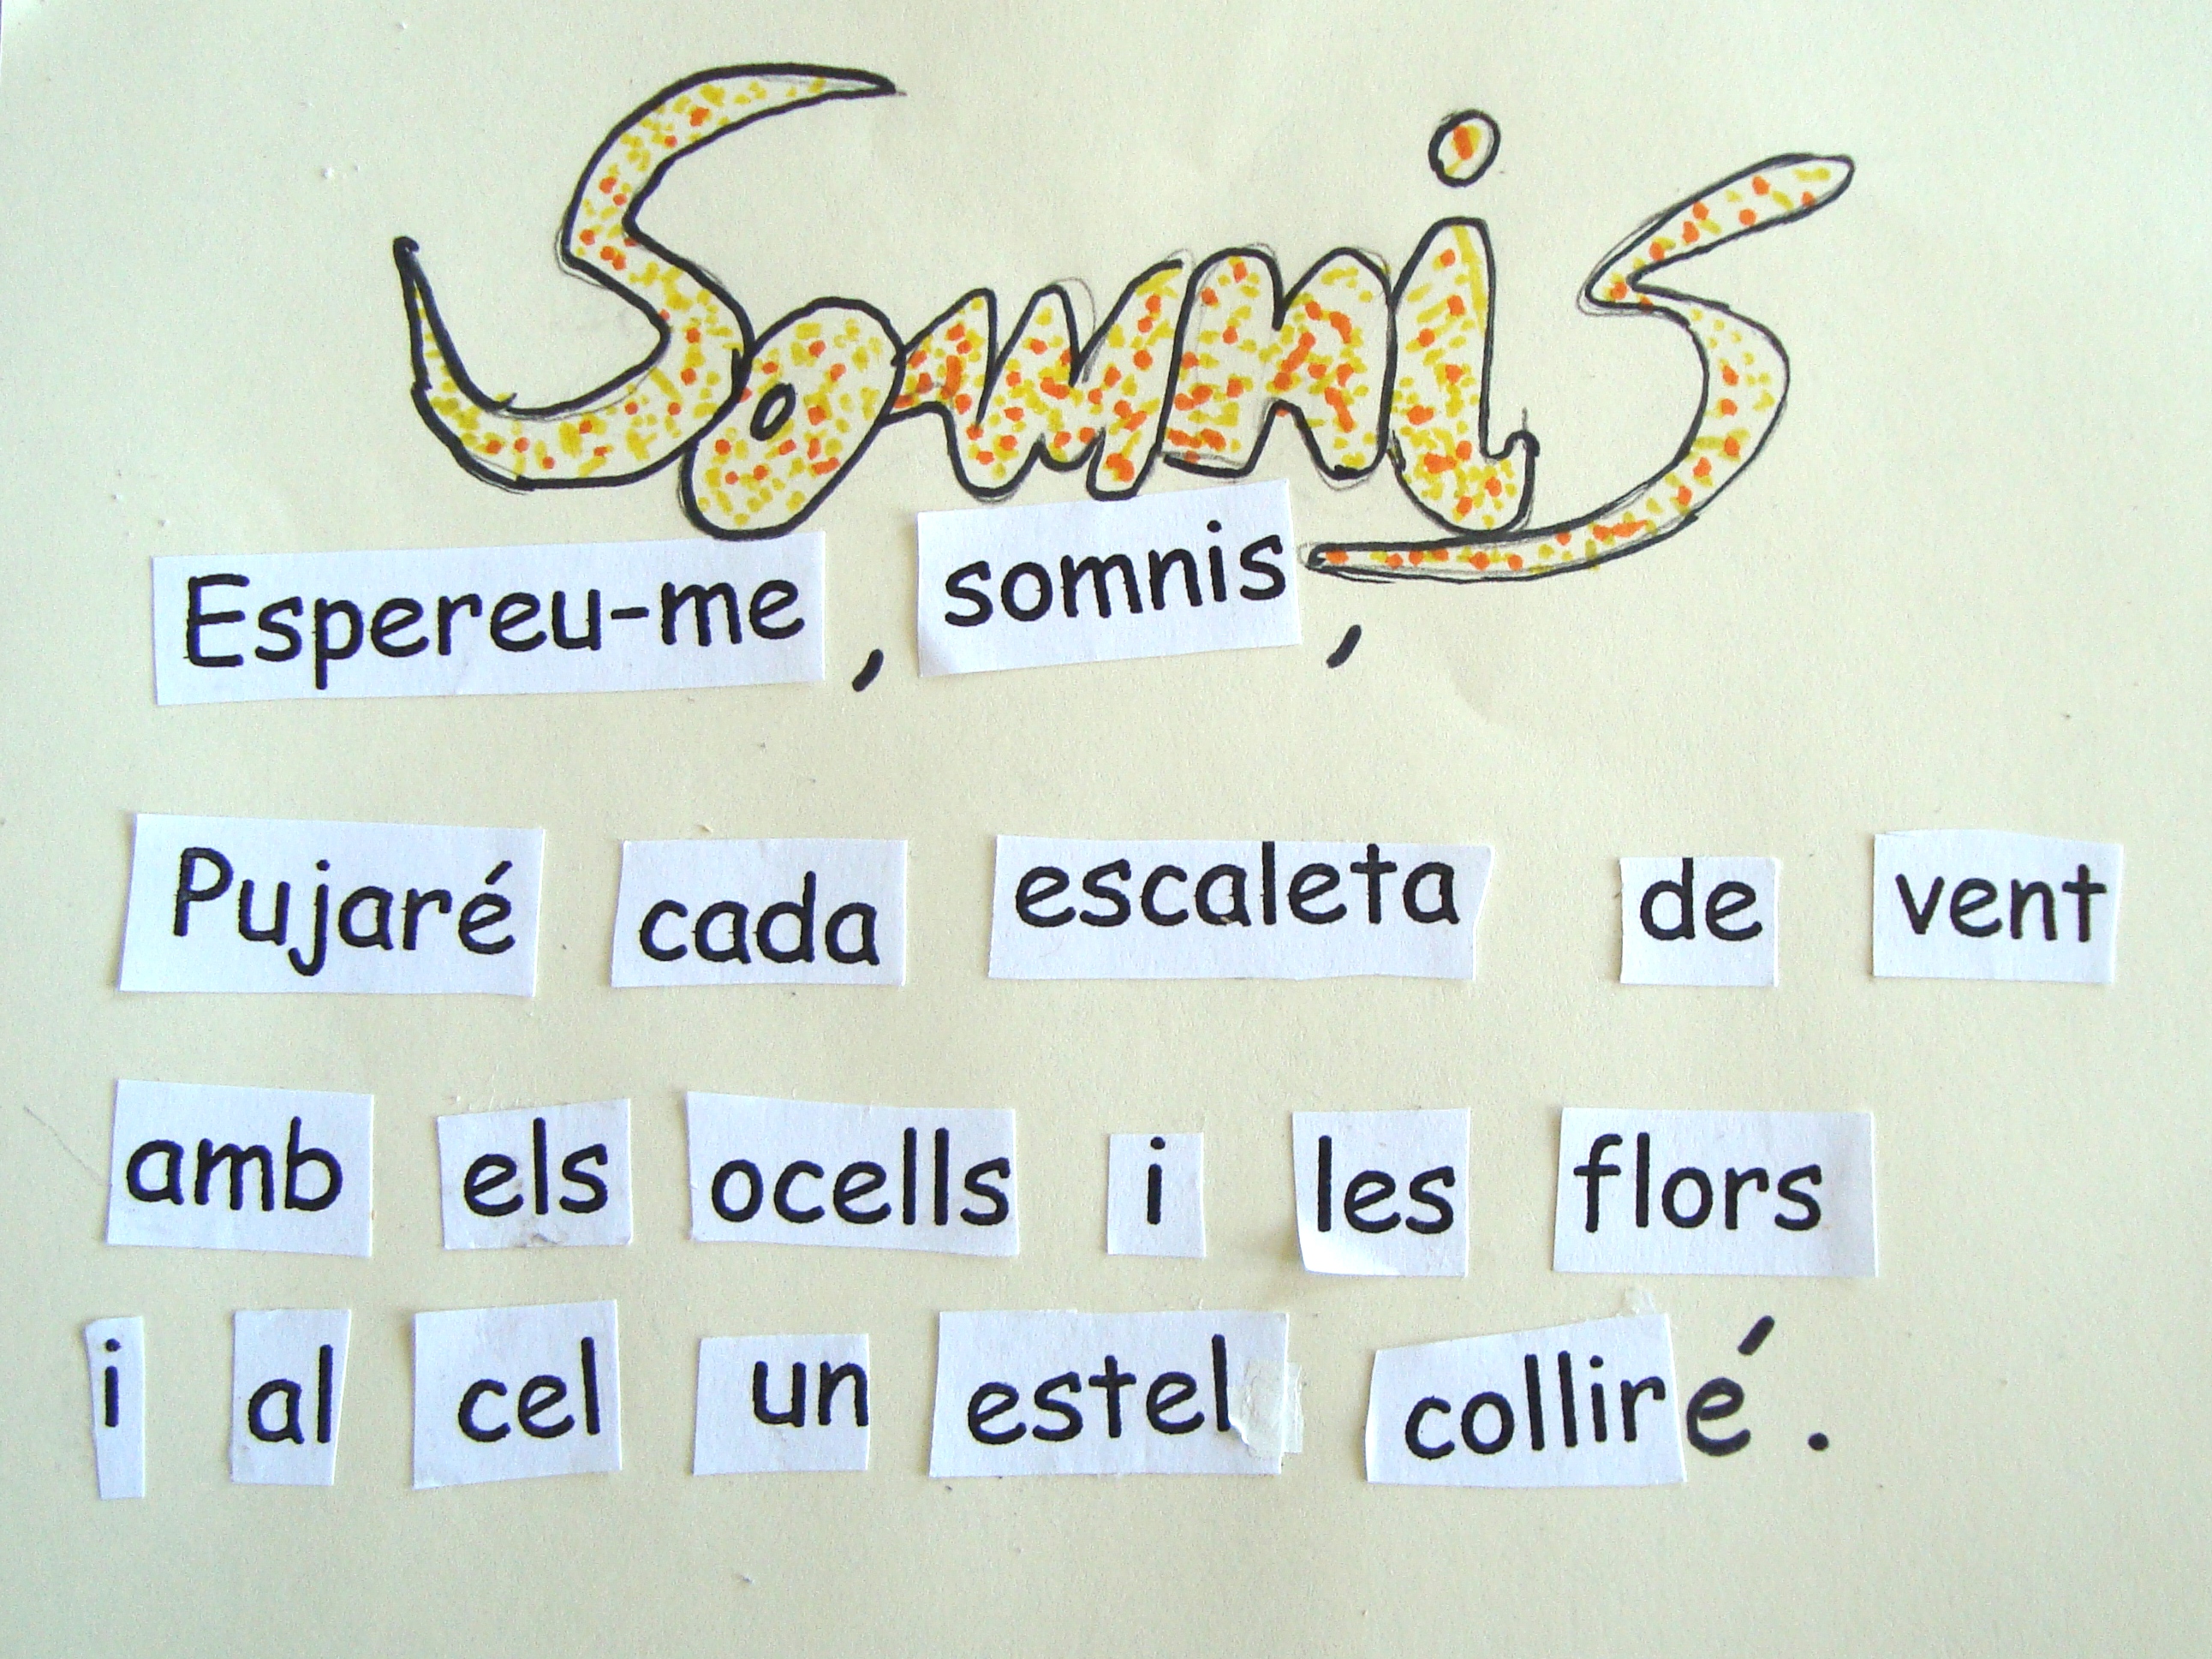 Somnis
Espereu-me, somnis,
Pujaré cada escaleta de vent
amb els ocells i les flors
i al cel un estel colliré.